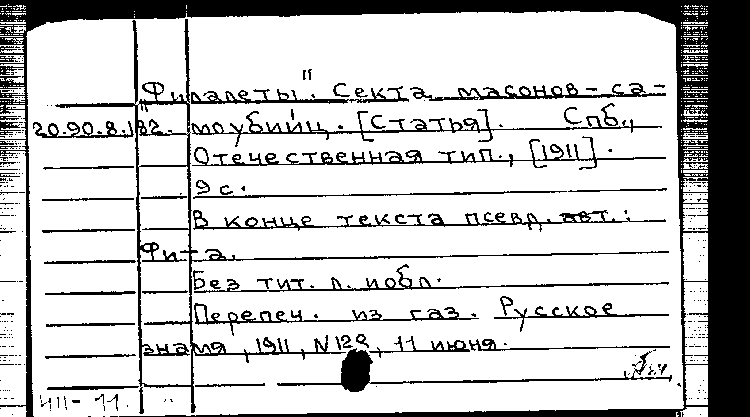 "Филалеты". Секта масонов-са-
20.90.8.182. моубийц. [Статья]. Спб.,
Отечественная тип., [1911].
9 с.
В конце текста псевд. авт.:
Фита.
Без тит. л. и обл.
Перепеч. из газ. Русское
знамя, 1911, N 129, 11 июня.